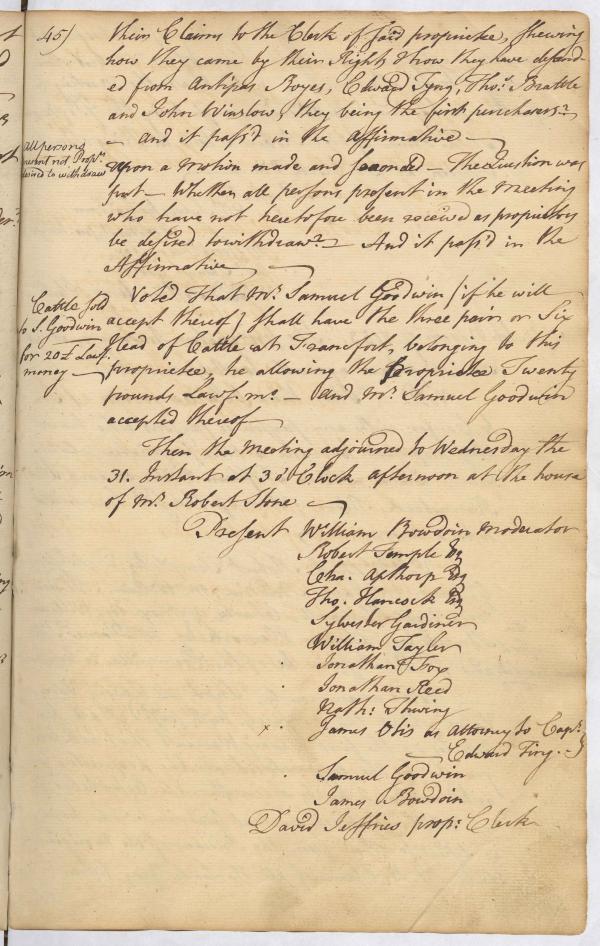 45)
their Claims to the Clerk of said proprietee, shewing
how they came by their Right & how they have defend-
ed from Antipas Boyes, Edward Tyng, Thos. Brattle
and John Winslow, they being the first purchasers?
— and it pass'd in the Affirmative —
all persons
present not Proprs.
desired to withdraw
Upon a motion made and seconded — The Question was
put — Whether all persons present in the Meeting
who have not heretofore been received as proprietors
be desired to withdraw? — And it pass'd in the
Affirmative —
Cattle sold
to S. Goodwin
for 20£ Lawf.
money —
Voted That Mr. Samuel Goodwin (if he will
accept thereof) shall have the three pair or Six
Head of Cattle at Francfort, belonging to this
proprietee, he allowing the Proprietee Twenty
pounds Lawf. mo. — and Mr. Samuel Goodwin
accepted thereof
Then the Meeting adjourned to Wednesday the
31. Instant at 3 o'Clock afternoon at the house
of Mr. Robert Stone —
Present William Bowdoin Moderator
Robert Temple Esq
Cha. Apthorp Esq
Tho. Hancock Esq
Sylvester Gardiner
William Tayler
Jonathan Fox
Jonathan Reed
Nath: Thwing
x James Otis as Attorney to Capt.
Edward Ting. —
Samuel Goodwin
James Bowdoin
David Jeffries prop: Clerk